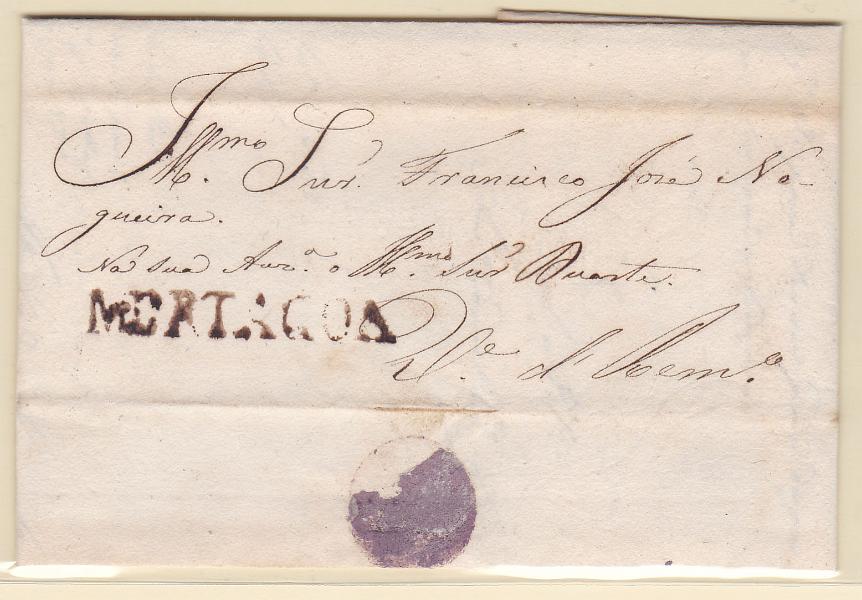 Illmo Snr. Francisco José No-
gueira.
Na sua Auz.a o Illmo Snr Duarte.
MORTAGOA
D.e